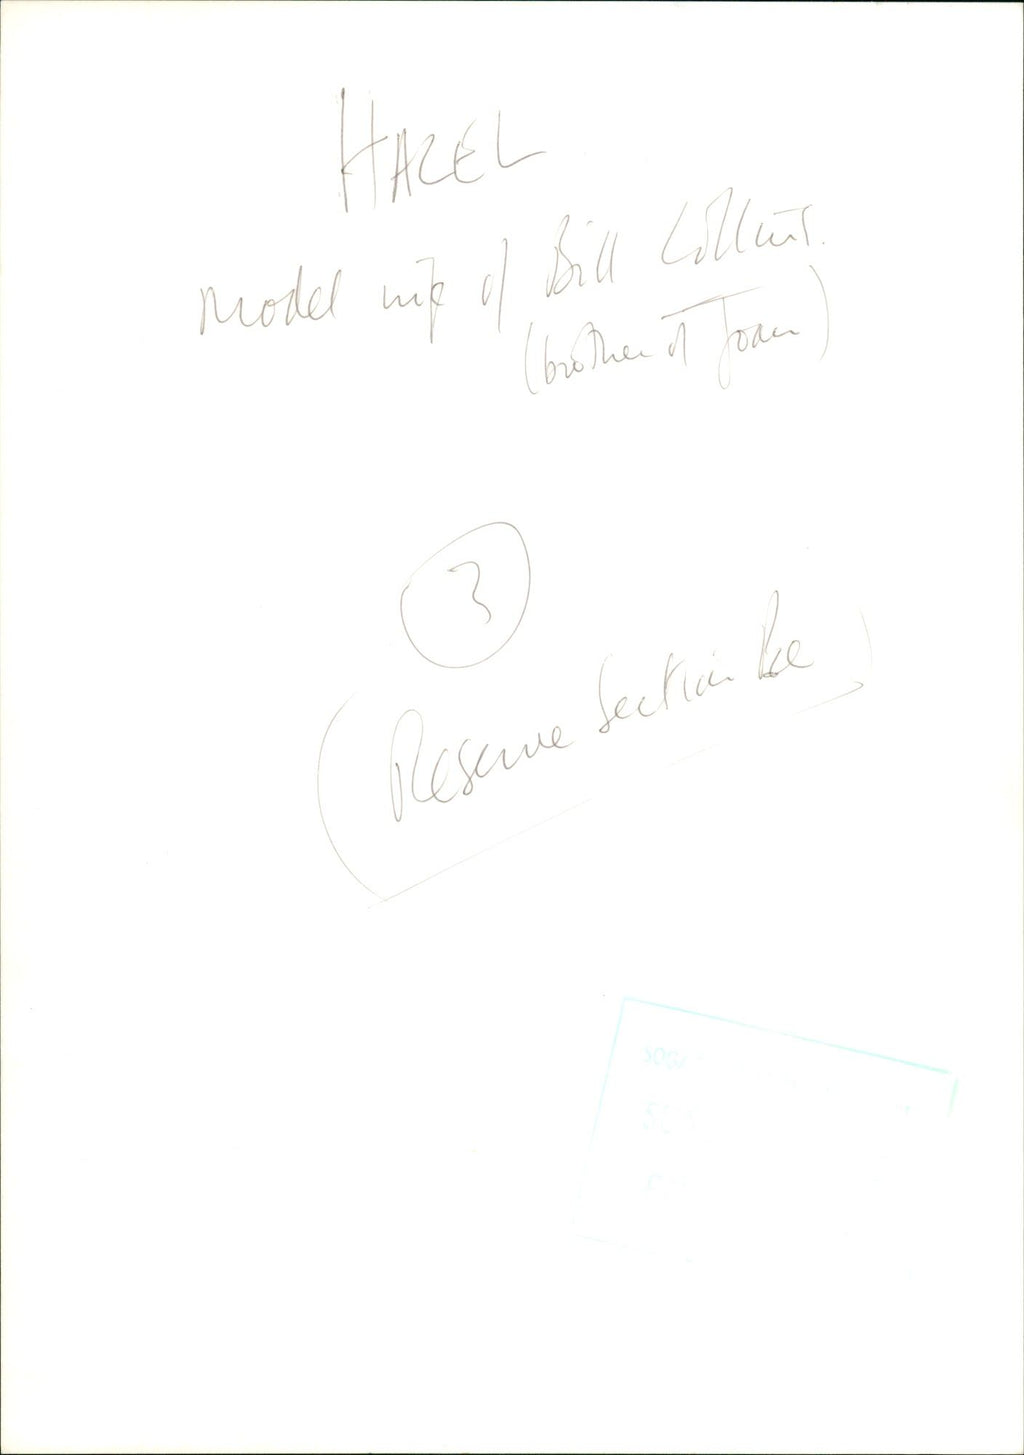 HAZEL
Model wife of Bill Collins.
(brother of Joan)
3
(Reserve Section